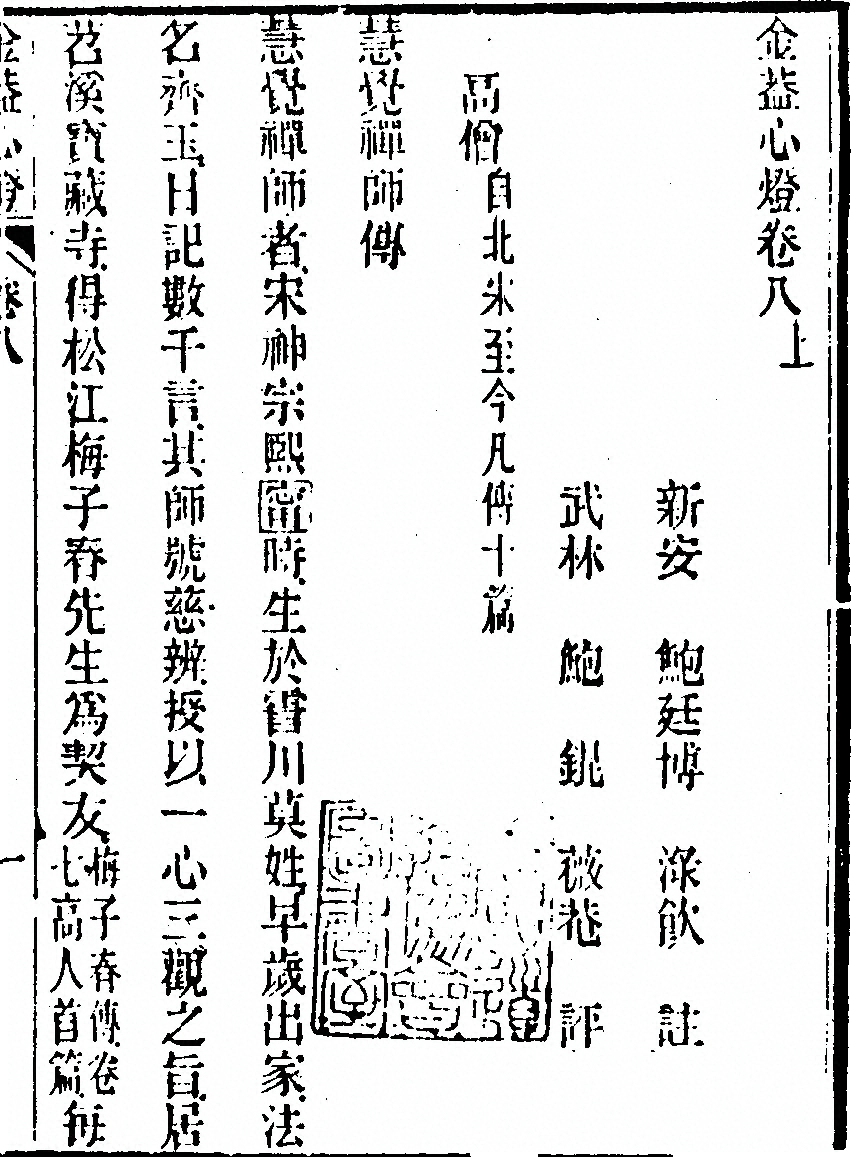 金蓋心燈卷八上
新安 鮑廷博 淥飲 註
武林 鮑錕 薇菴 評
高僧自北宋至今凡傳十篇
慧覺禪師傳
慧覺禪師者宋神宗熙甯時生於霅川莫姓早歲出家法
名齊玉日記數千言其師號慈辨授以一心三觀之旨居
苕溪寶藏寺得松江梅子春先生爲契友梅子春傳卷七高人首篇每
金蓋心燈 卷八 一